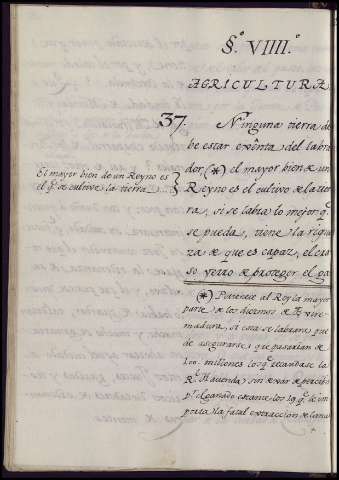 §.º VIIII.º
AGRICULTURA.
37. Ninguna tierra de
be estar exênta del labra
dor (*) el mayor bien de un
Reyno es el cultivo de la tier
ra, si se labra lo mejor q.e
se pueda, tiene la rique
za de que es capaz, el cra
so yerro de proteger el ga
El mayor bien de un Reyno es
el q.e se cultive la tierra.
(*) Pertenece al Rey la mayor
parte de los diezmos de Extre
madura, si esta se labrara, que
de asegurarse, que pasarian de
100. millones los q.e recaudase la
R.l Hacienda; sin dexar de percibir
p.r el ganado estante los 19 q.e le im
porta la fatal extraccion de lanas